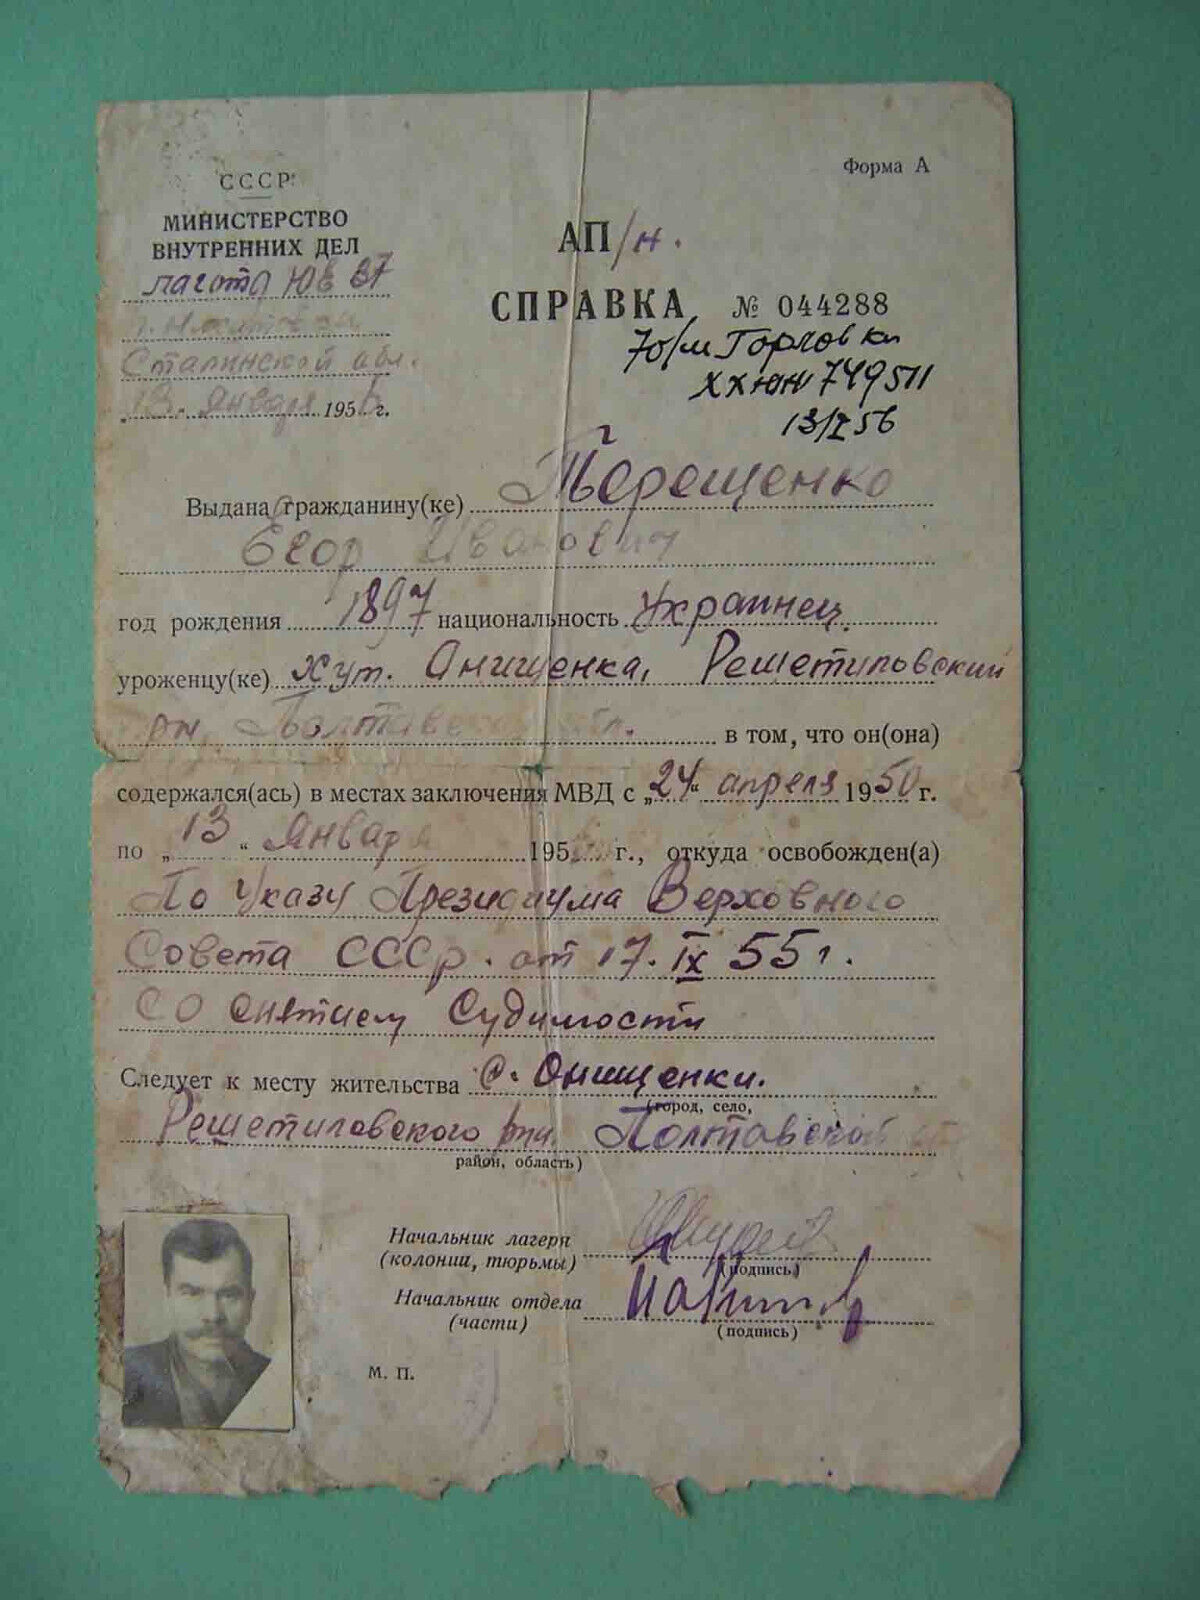 Форма А
СССР
МИНИСТЕРСТВО
ВНУТРЕННИХ ДЕЛ
ЮЕ 37
Сталинской обл.
"13" января 1956 г.
АП/н.
СПРАВКА № 044288
7о/м Горловки
ХХ ЮН 749511
13/I 56
Выдана гражданину(ке) Терещенко
Егор Иванович
год рождения 1897 национальность Украинец
уроженцу(ке) хут. Онищенка, Решетиловский
рн Полтавской обл. в том, что он(она)
содержался(ась) в местах заключения МВД с „24" апреля 1950 г.
по „13" Января 195 г., откуда освобожден(а)
По Указу Президиума Верховного
Совета СССР. от 17. IX 55 г.
со снятием Судимости
Следует к месту жительства с. Онищенки.
(город, село,
Решетиловского рн. Полтавской
район, область)
Начальник лагеря
(колонии, тюрьмы)
(подпись)
Начальник отдела
(части)
(подпись)
М. П.